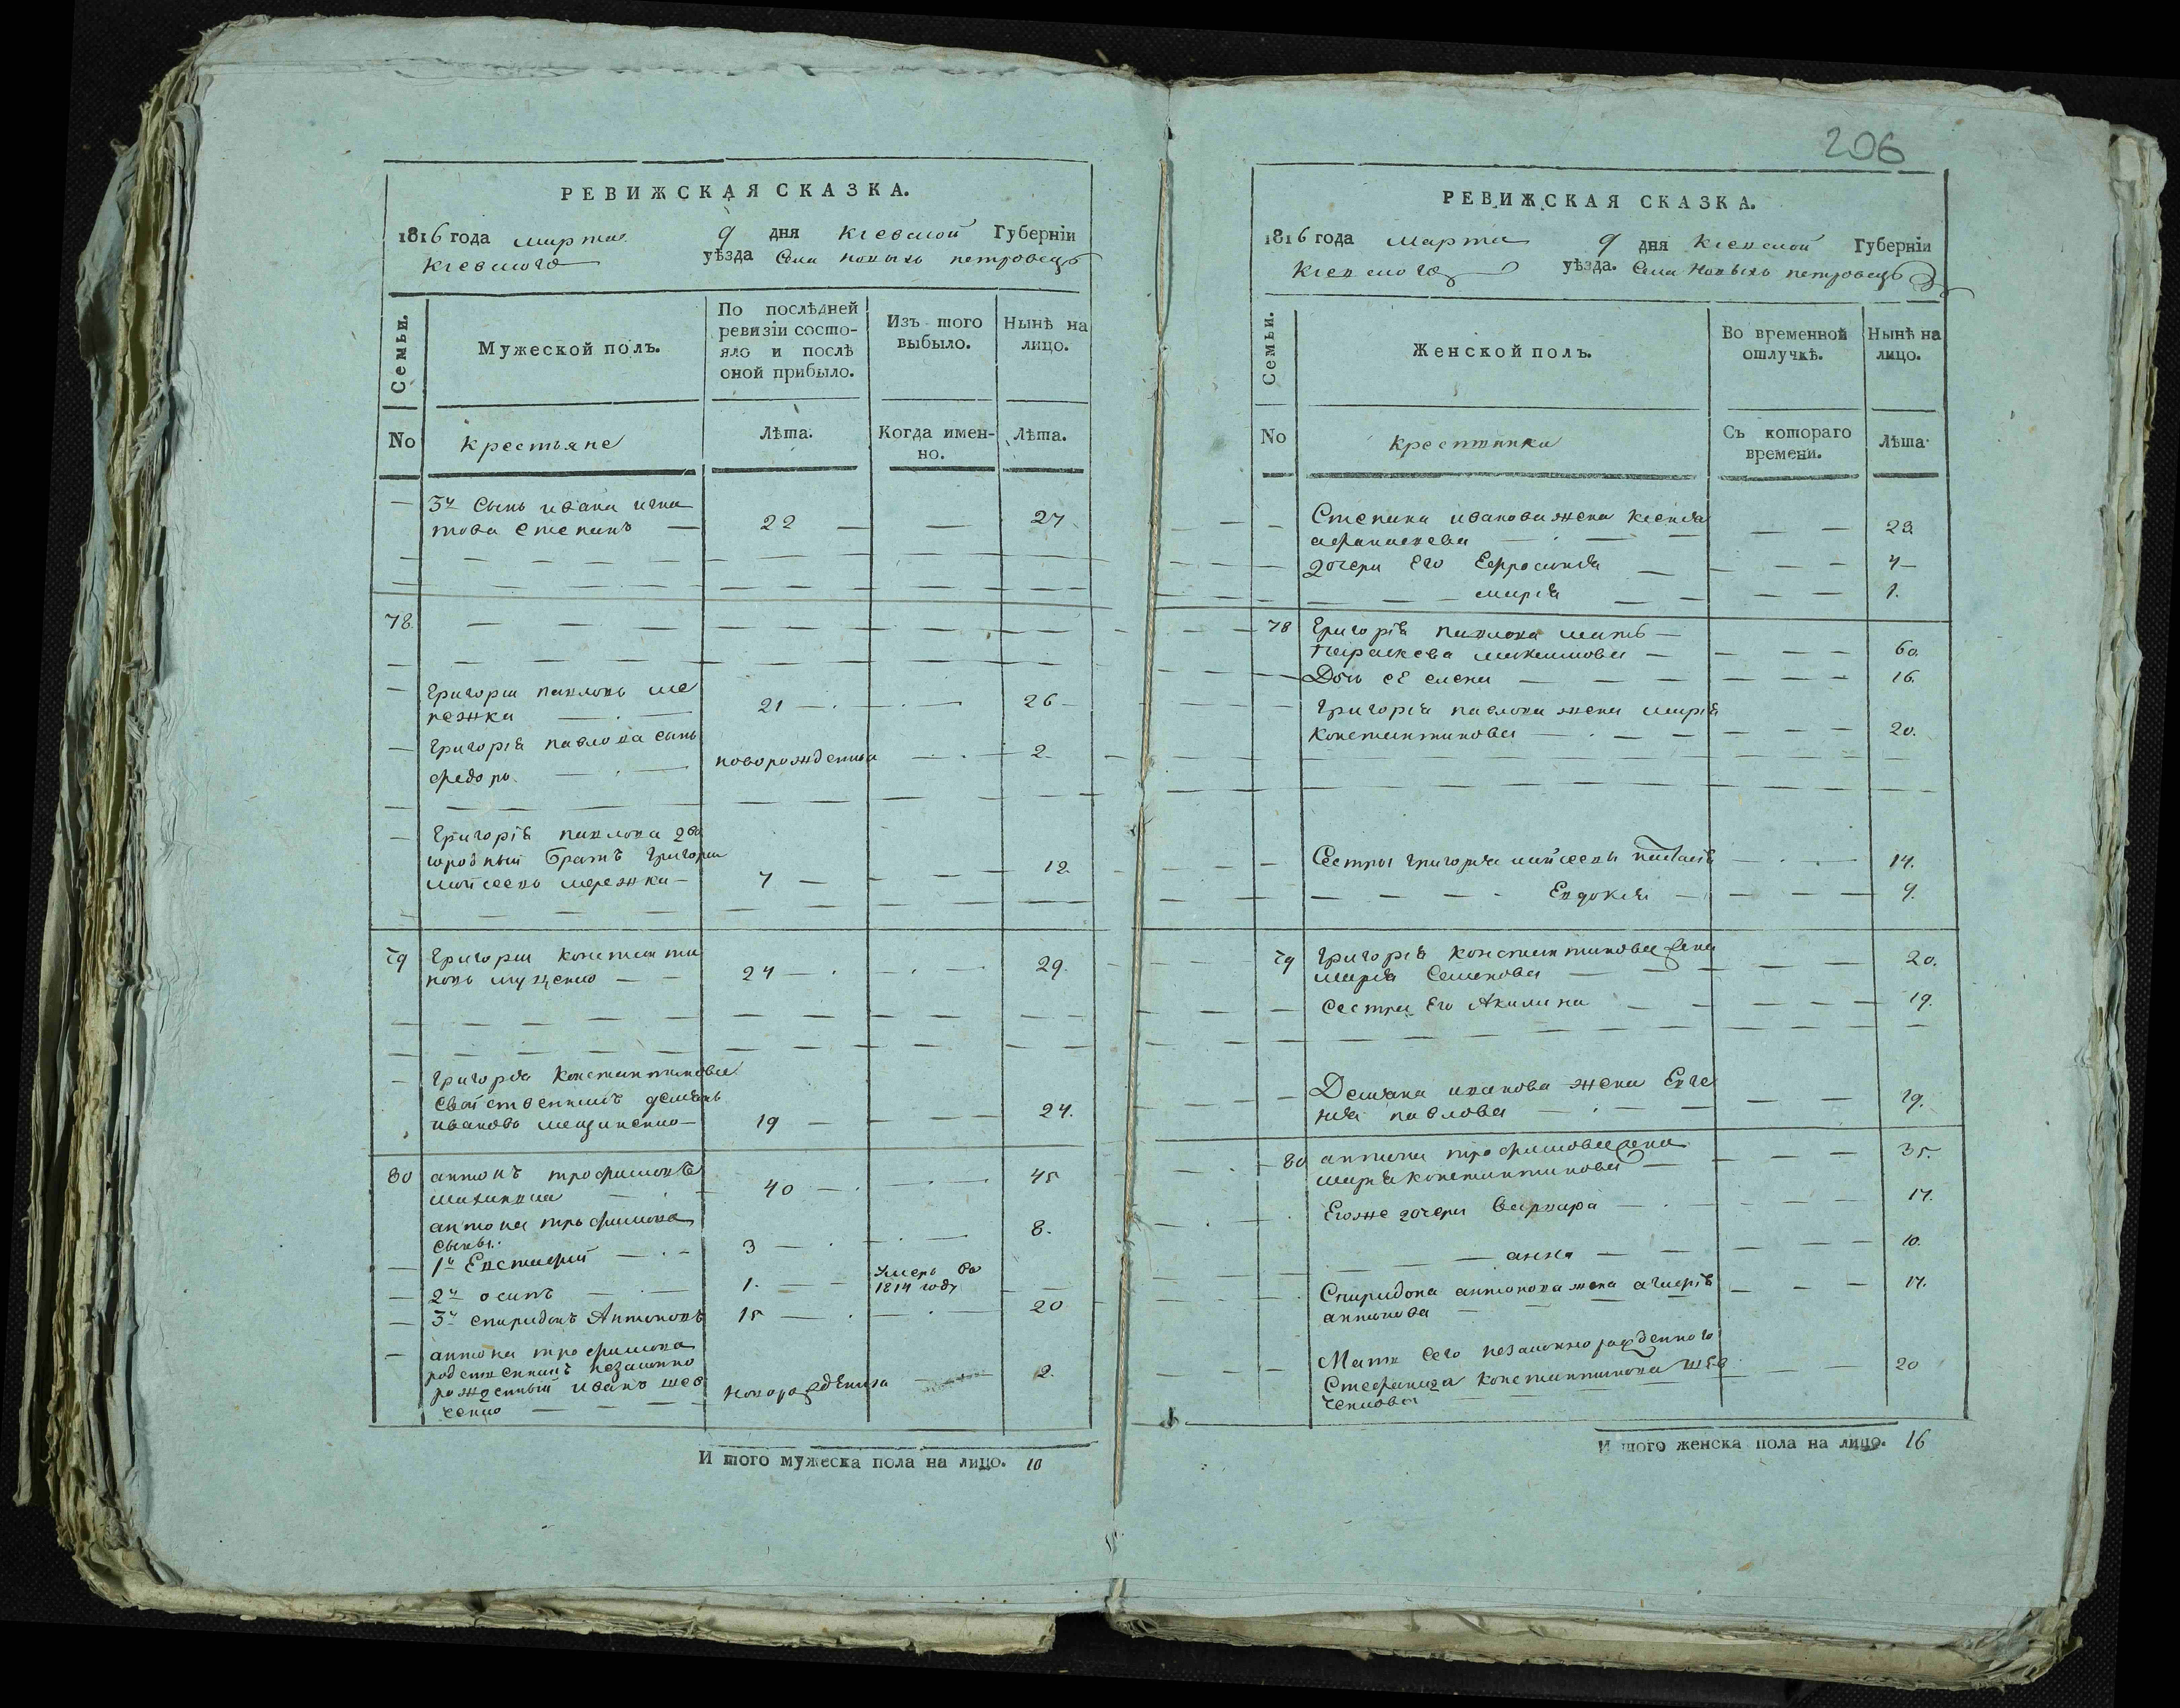 РЕВИЖСКАЯ СКАЗКА.
1816 года марта 9 дня Кіевской Губерніи
Кіевского уѣзда Села новыхъ петровецъ
Семьи.
Мужеской полъ.
По послѣдней
ревизіи состо-
яло и послѣ
оной прибыло.
Изъ того
выбыло.
Нынѣ на
лицо.
No
крестьяне
Лѣта.
Когда имен-
но.
Лѣта.
3й Сынъ ивана игна
това Степанъ 22 27
78.
Григории павловъ ме
режка 21 26
Григорія павлова сынъ
федоръ новорожденны 2.
Григорія павлова дво
юродный братъ Григори
мойсеевъ мережка 7 12.
79 Григории константи
новъ луценко 24 29.
Григорія Константинова
свойственникъ демянъ
ивановъ 19 24.
80 антонъ трофимовъ
40 45
антона трофимова
сыны:
1й Евстафий 3 8.
2й осипъ 1. Умеръ въ
1814 году
3й спиридонъ Антоновъ 15 20
антона трофимова
родственникъ незаконно
рожденный иванъ шев
ченко новорожденны 2.
И того мужеска пола на лицо. 10
206
РЕВИЖСКАЯ СКАЗКА.
1816 года марта 9 дня Кіевской Губерніи
Кіевского уѣзда. Села Новыхъ петровецъ
Семьи.
Женской полъ.
Во временной
отлучкѣ.
Нынѣ на
лицо.
No
крестьянки
Съ котораго
времени.
Лѣта.
Степана иванова жена ксенія
афанасиева 23
дочери его Ефросинія 4
марія 1.
78 Григорія павлова мать
Параскева максимова 60.
Дочь её елена 16.
Григорія павлова жена марія
Константинова 20.
Сестры григорія мойсеева настасія 14.
Евдокія 9.
79 Григорія константинова жена
марія Семенова 20.
сестра его Акилина 19.
Демяна иванова жена Евге
нія павлова 19.
80 антона трофимова жена
марія константинова 35.
Егоже дочери варвара 17.
анна 10.
Спиридона антонова жена агафія
антонова 17.
Мать сего незаконно рожденного
Стефанида константинова шев
ченкова 20
И того женска пола на лицо. 16